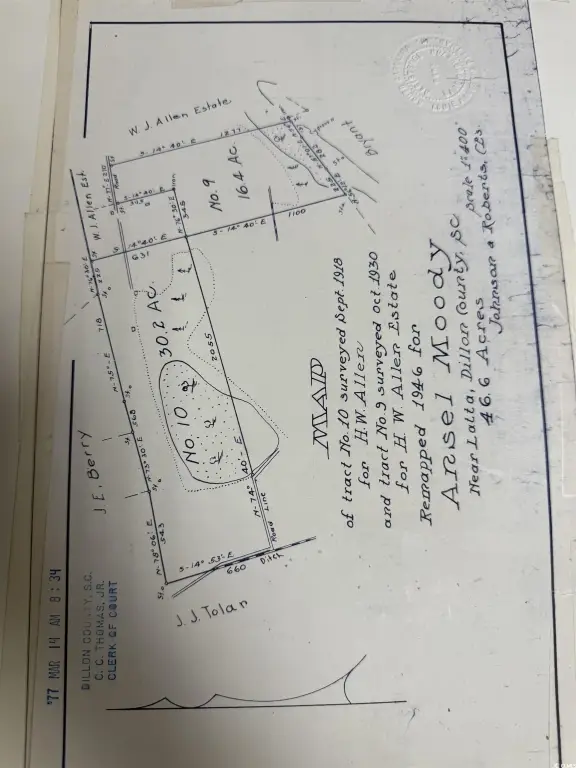 '77 MAR 14 AM 8:34
DILLON COUNTY, S.C.
C. C. THOMAS, JR.
CLERK OF COURT
J E. Berry
W. J. Allen Est.
W. J. Allen Estate
Bryant
J. J. Tolar
No. 9
16.4 Ac.
30.2 AC.
No. 10
S-14° 40' E
1277
S-14° 40' E
1100
14° 40' E
631
545
718
N-75°-E
568
N-75° 30' E
543
N-78° 06' E
S-14° 53' E
660
Ditch
2055
N-74°
40'-E
Road
Line
MAP
of tract No. 10 surveyed Sept. 1918
for H. W. Allen
and tract No. 9 surveyed Oct. 1930
for H. W. Allen Estate
Remapped 1946 for
Ansel Moody
Near Latta, Dillon County, SC
46.6 Acres Scale 1"=400'
Johnson & Roberts, CEs.